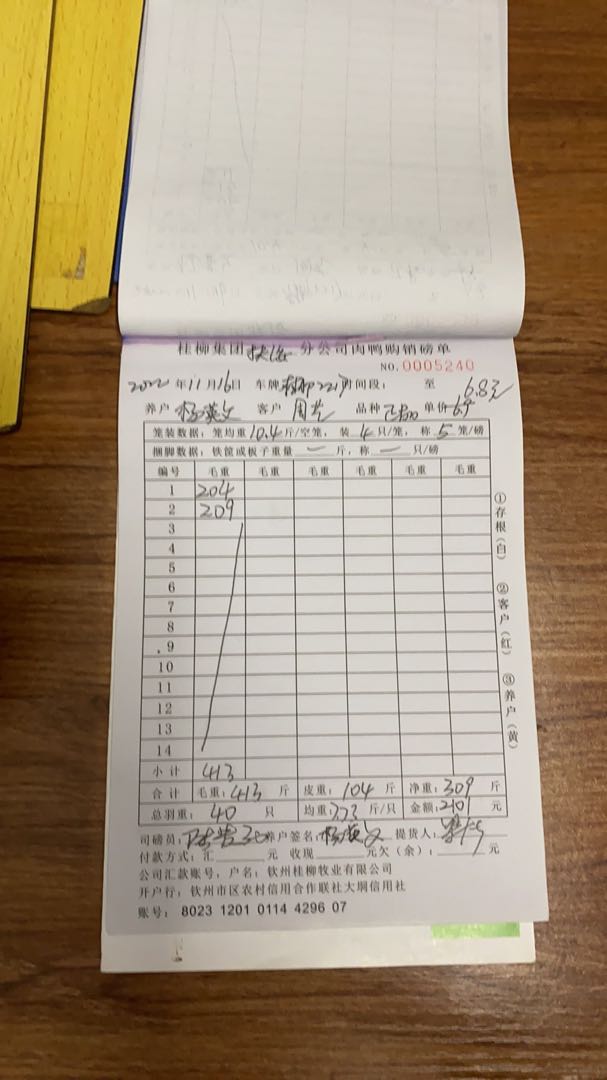 桂柳集团 分公司肉鸭购销磅单
NO.0005240
2022年11月16日 车牌 时间段: 至 6.8元
养户 杨 客户 周 品种 单价
笼装数据: 笼均重10.4斤/空笼, 装4只/笼, 称5笼/磅
捆脚数据: 铁筐或板子重量 — 斤, 称 — 只/磅
编号 毛重 毛重 毛重 毛重 毛重 毛重
1 204
2 209
3
4
5
6
7
8
9
10
11
12
13
14
小计 413
合计 毛重: 413 斤 皮重: 104 斤 净重: 309 斤
总羽重: 40 只 均重: 7.73 斤/只 金额: 2101 元
司磅员: 养户签名: 杨 提货人:
付款方式: 汇 元 收现 元欠(余): 元
公司汇款账号, 户名: 钦州桂柳牧业有限公司
开户行: 钦州市区农村信用合作联社大垌信用社
账号: 8023 1201 0114 4296 07
①存根(白) ②客户(红) ③养户(黄)